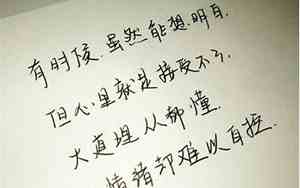 有时候.虽然能想明白.
但心里就是接受不了.
大道理人都懂.
情绪却难以自控.